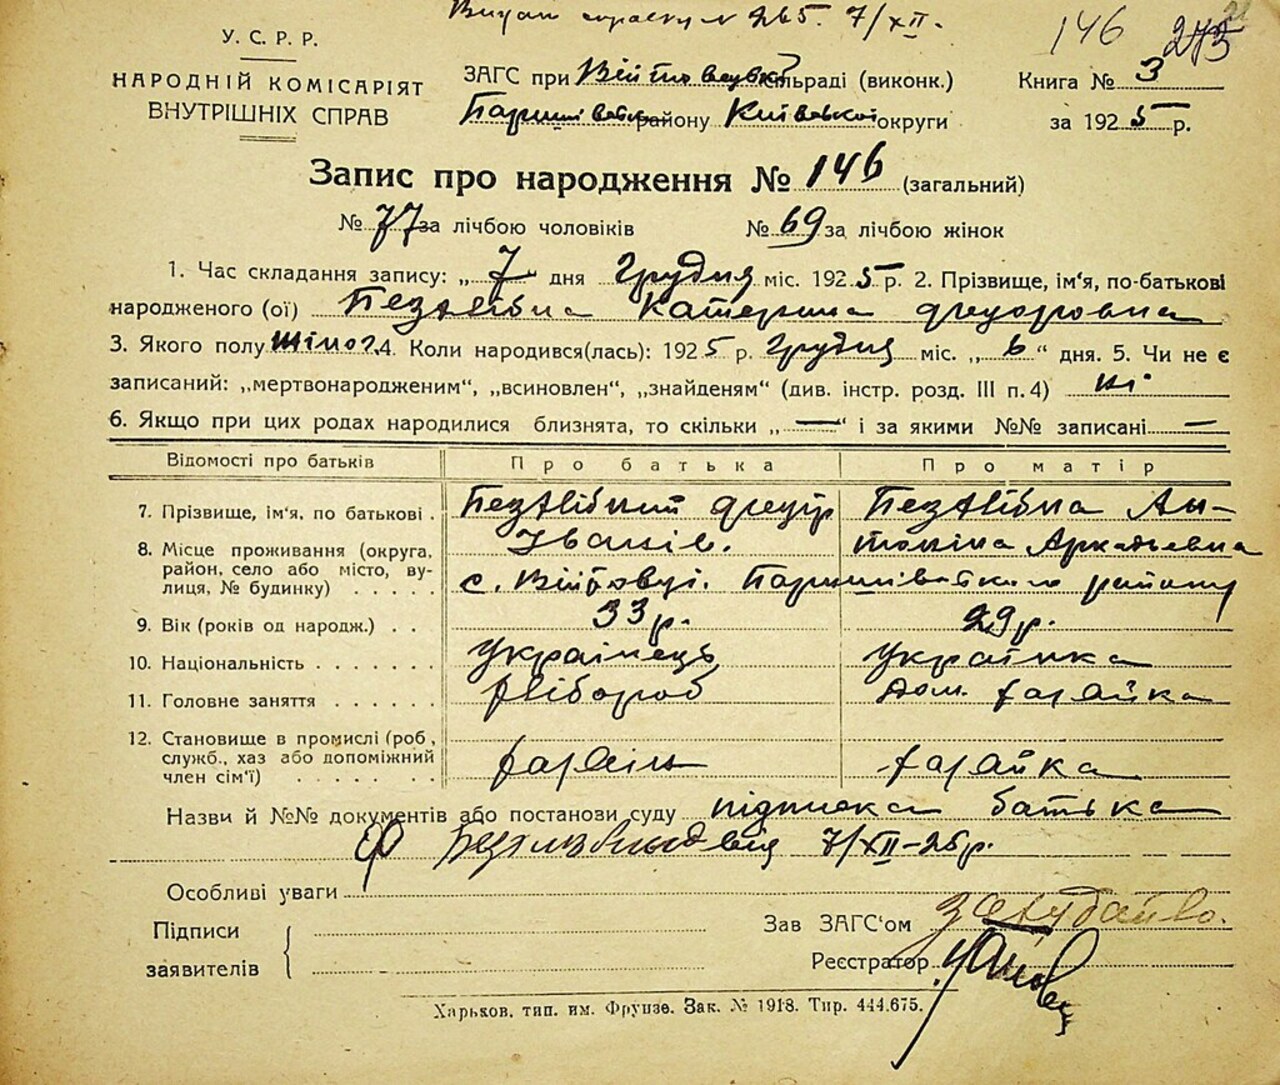 Видан справку № 265. 7/XII-
146
У. С. Р. Р.
НАРОДНІЙ КОМІСАРІЯТ
ВНУТРІШНІХ СПРАВ
ЗАГС при сільраді (виконк.)
району Київської округи
Книга № 3
за 1925 р.
Запис про народження № 146 (загальний)
№ 77 за лічбою чоловіків № 69 за лічбою жінок
1. Час складання запису: „ 7 " дня Грудня міс. 1925 р. 2. Прізвище, ім'я, по-батькові
народженого (ої) Безхлібна Катерина Федоровна
3. Якого полу жіноч. 4. Коли народився(лась): 1925 р. Грудня міс. „ 6 " дня. 5. Чи не є
записаний: „мертвонародженим", „всиновлен", „знайденям" (див. інстр. розд. III п. 4) ні
6. Якщо при цих родах народилися близнята, то скільки „ — " і за якими №№ записані —
Відомості про батьків Про батька Про матір
7. Прізвище, ім'я, по батькові . Безхлібний Федір Безхлібна Ан-
Іванів. тоніна Аркадьевна
8. Місце проживання (округа,
район, село або місто, ву-
лиця, № будинку) . . . . . с. району
9. Вік (років од народж.) . . 33 р. 29 р.
10. Національність . . . . . . . Українець Українка
11. Головне заняття . . . . . . хлібороб дом. хазяйка
12. Становище в промислі (роб.,
служб., хаз або допоміжний
член сім'ї) . . . . . . . хазяїн хазяйка
Назви й №№ документів або постанови суду підписка батька
від 7/XII-25 р.
Особливі уваги
Підписи
заявителів
Зав ЗАГС'ом
Реєстратор
Харьков. тип. им. Фрунзе. Зак. № 1918. Тир. 444.675.